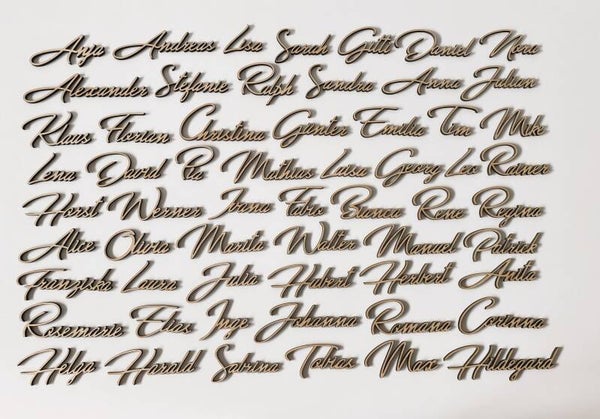 Anja Andreas Lisa Sarah Gitti Daniel Nora
Alexander Stefanie Ralph Sandra Anna Julian
Klaus Florian Christina Günter Emilia Tim Mike
Lena David Pia Mathias Luisa Georg Leo Rainer
Horst Werner Joana Fabio Bianca Rene Regina
Alice Olivia Marita Walter Manuel Patrick
Franziska Laura Julia Hubert Herbert Anita
Rosemarie Elias Inge Johanna Ramona Corinna
Helga Harald Sabrina Tobias Max Hildegard